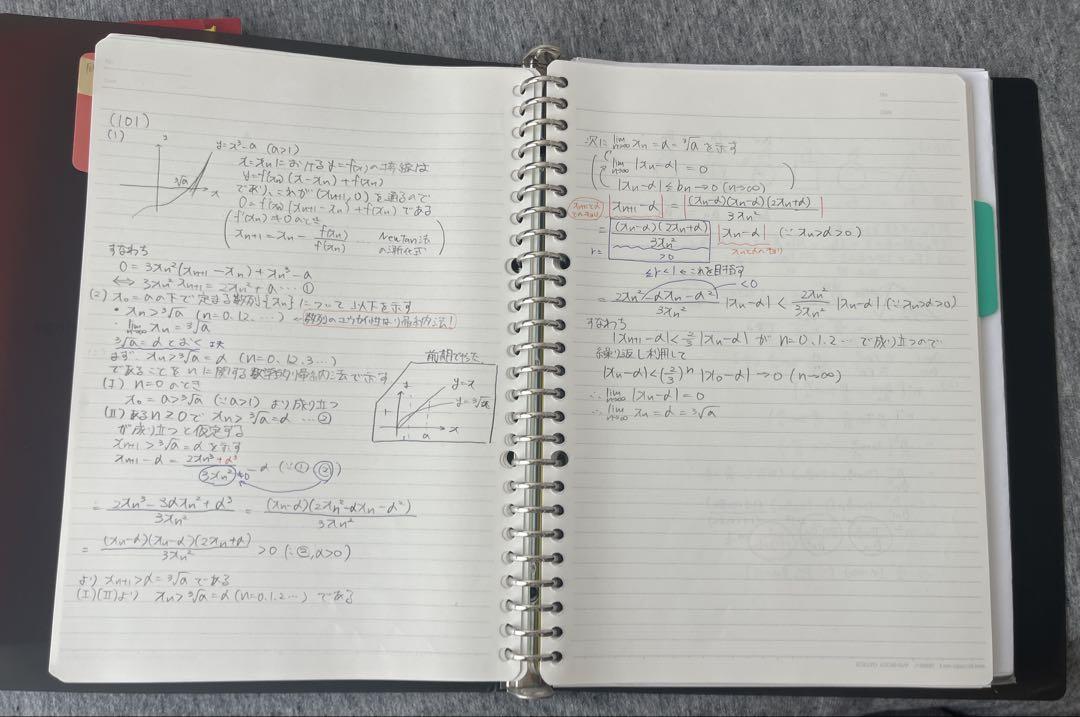 (101)
(1)
y=x³-a (a>1)
x=xnにおける y=f(x)の接線は
y=f'(xn)(x-xn)+f(xn)
であり、これが(xn+1, 0)を通るので
0=f'(xn)(xn+1-xn)+f(xn) である
f'(xn)≠0のとき
xn+1=xn- f(xn)/f'(xn) … Newtan法の漸化式
³√a
x
すなわち
0=3xn²(xn+1-xn)+xn³-a
⇔ 3xn²xn+1=2xn³+a…①
(2) x₀=aの下で定まる数列{xn}について以下を示す
• xn>³√a (n=0,1,2,…) ←数列の 帰納法!
・lim n→∞ xn=³√a
³√a=αとおく
まず、xn>³√a=α (n=0,1,2,3…)
であることをnに関する数学的帰納法で示す
(Ⅰ) n=0のとき
x₀=a>³√a (∵a>1) より成り立つ
(Ⅱ) あるn≥0で xn>³√a=α …②
が成り立つと仮定する
xn+1>³√a=αを示す
xn+1-α= (2xn³+α³)/(3xn²) -α (∵①②)
≠0
= (2xn³-3αxn²+α³)/(3xn²) = (xn-α)(2xn²-αxn-α²)/(3xn²)
= (xn-α)(xn-α)(2xn+α)/(3xn²) >0 (∵②,α>0)
より xn+1>α=³√aである
(Ⅰ)(Ⅱ)より xn>³√a=α (n=0.1.2…) である
前期でやった
y=x
y=³√x
1
a
x
次に lim n→∞ xn=α=³√aを示す
lim n→∞ |xn-α|=0
|xn-α|≤bn→0 (n→∞)
|xn+1-α| = |(xn-α)(xn-α)(2xn+α)/(3xn²)|
= (xn-α)(2xn+α)/(3xn²) |xn-α| (∵xn>α>0)
r=
>0
≤r<1 ←これを目指す
<0
= (2xn²-αxn-α²)/(3xn²) |xn-α| < 2xn²/3xn² |xn-α| (∵xn>α>0)
すなわち
|xn+1-α|<2/3|xn-α| が n=0.1.2…で成り立つので
繰り返し利用して
|xn-α|<(2/3)ⁿ|x₀-α|→0 (n→∞)
∴ lim n→∞ |xn-α|=0
∴ lim n→∞ xn=α=³√a